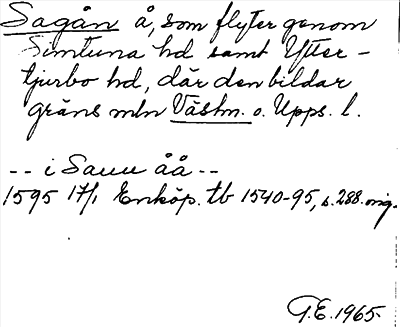 Sagån å, som flyter genom
Simtuna hd samt Ytter-
tjurbo hd, där den bildar
gräns mln Västm. o. Upps. l.
-- i Sauu åå --
1595 17/1 Enköp. tb 1540-95, s. 288. orig.
G.E. 1965